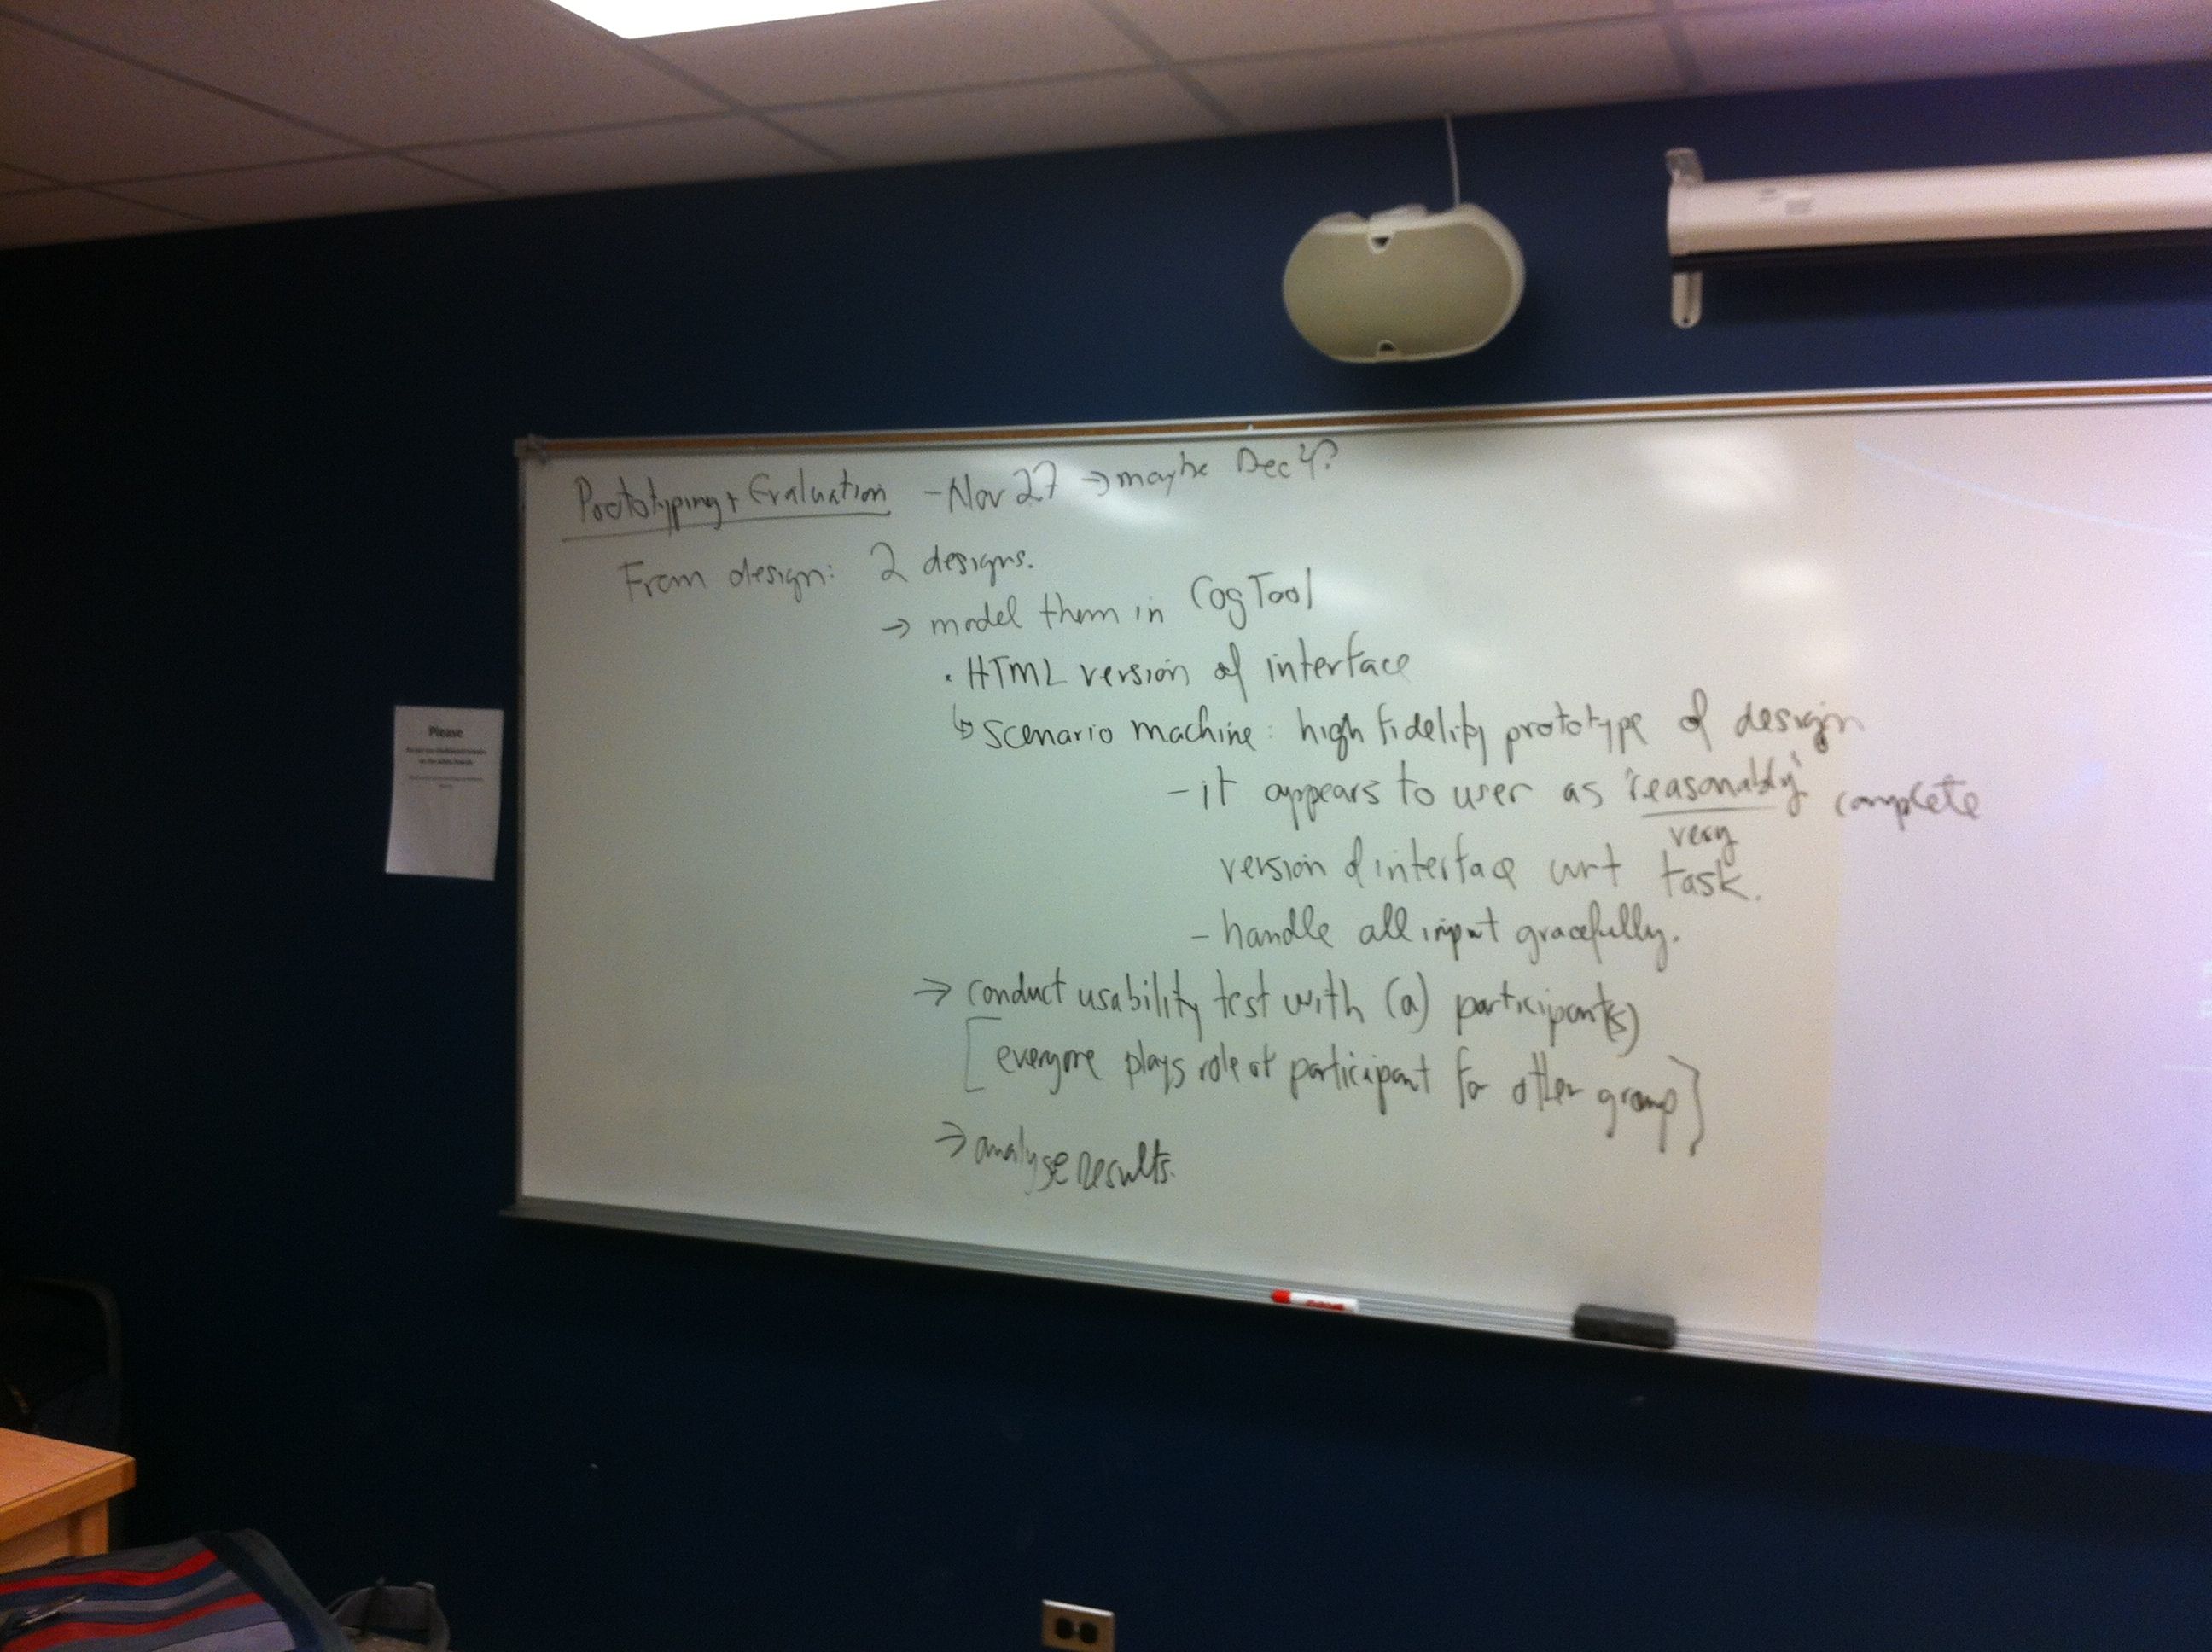 Prototyping + Evaluation - Nov 27 → maybe Dec 4?
From design: 2 designs.
→ model them in CogTool
• HTML version of interface
↳ scenario machine: high fidelity prototype of design
- it appears to user as "reasonably" complete
very
version of interface wrt task.
- handle all input gracefully.
→ conduct usability test with (a) participant(s)
[everyone plays role of participant for other group]
→ analyse results.
Please